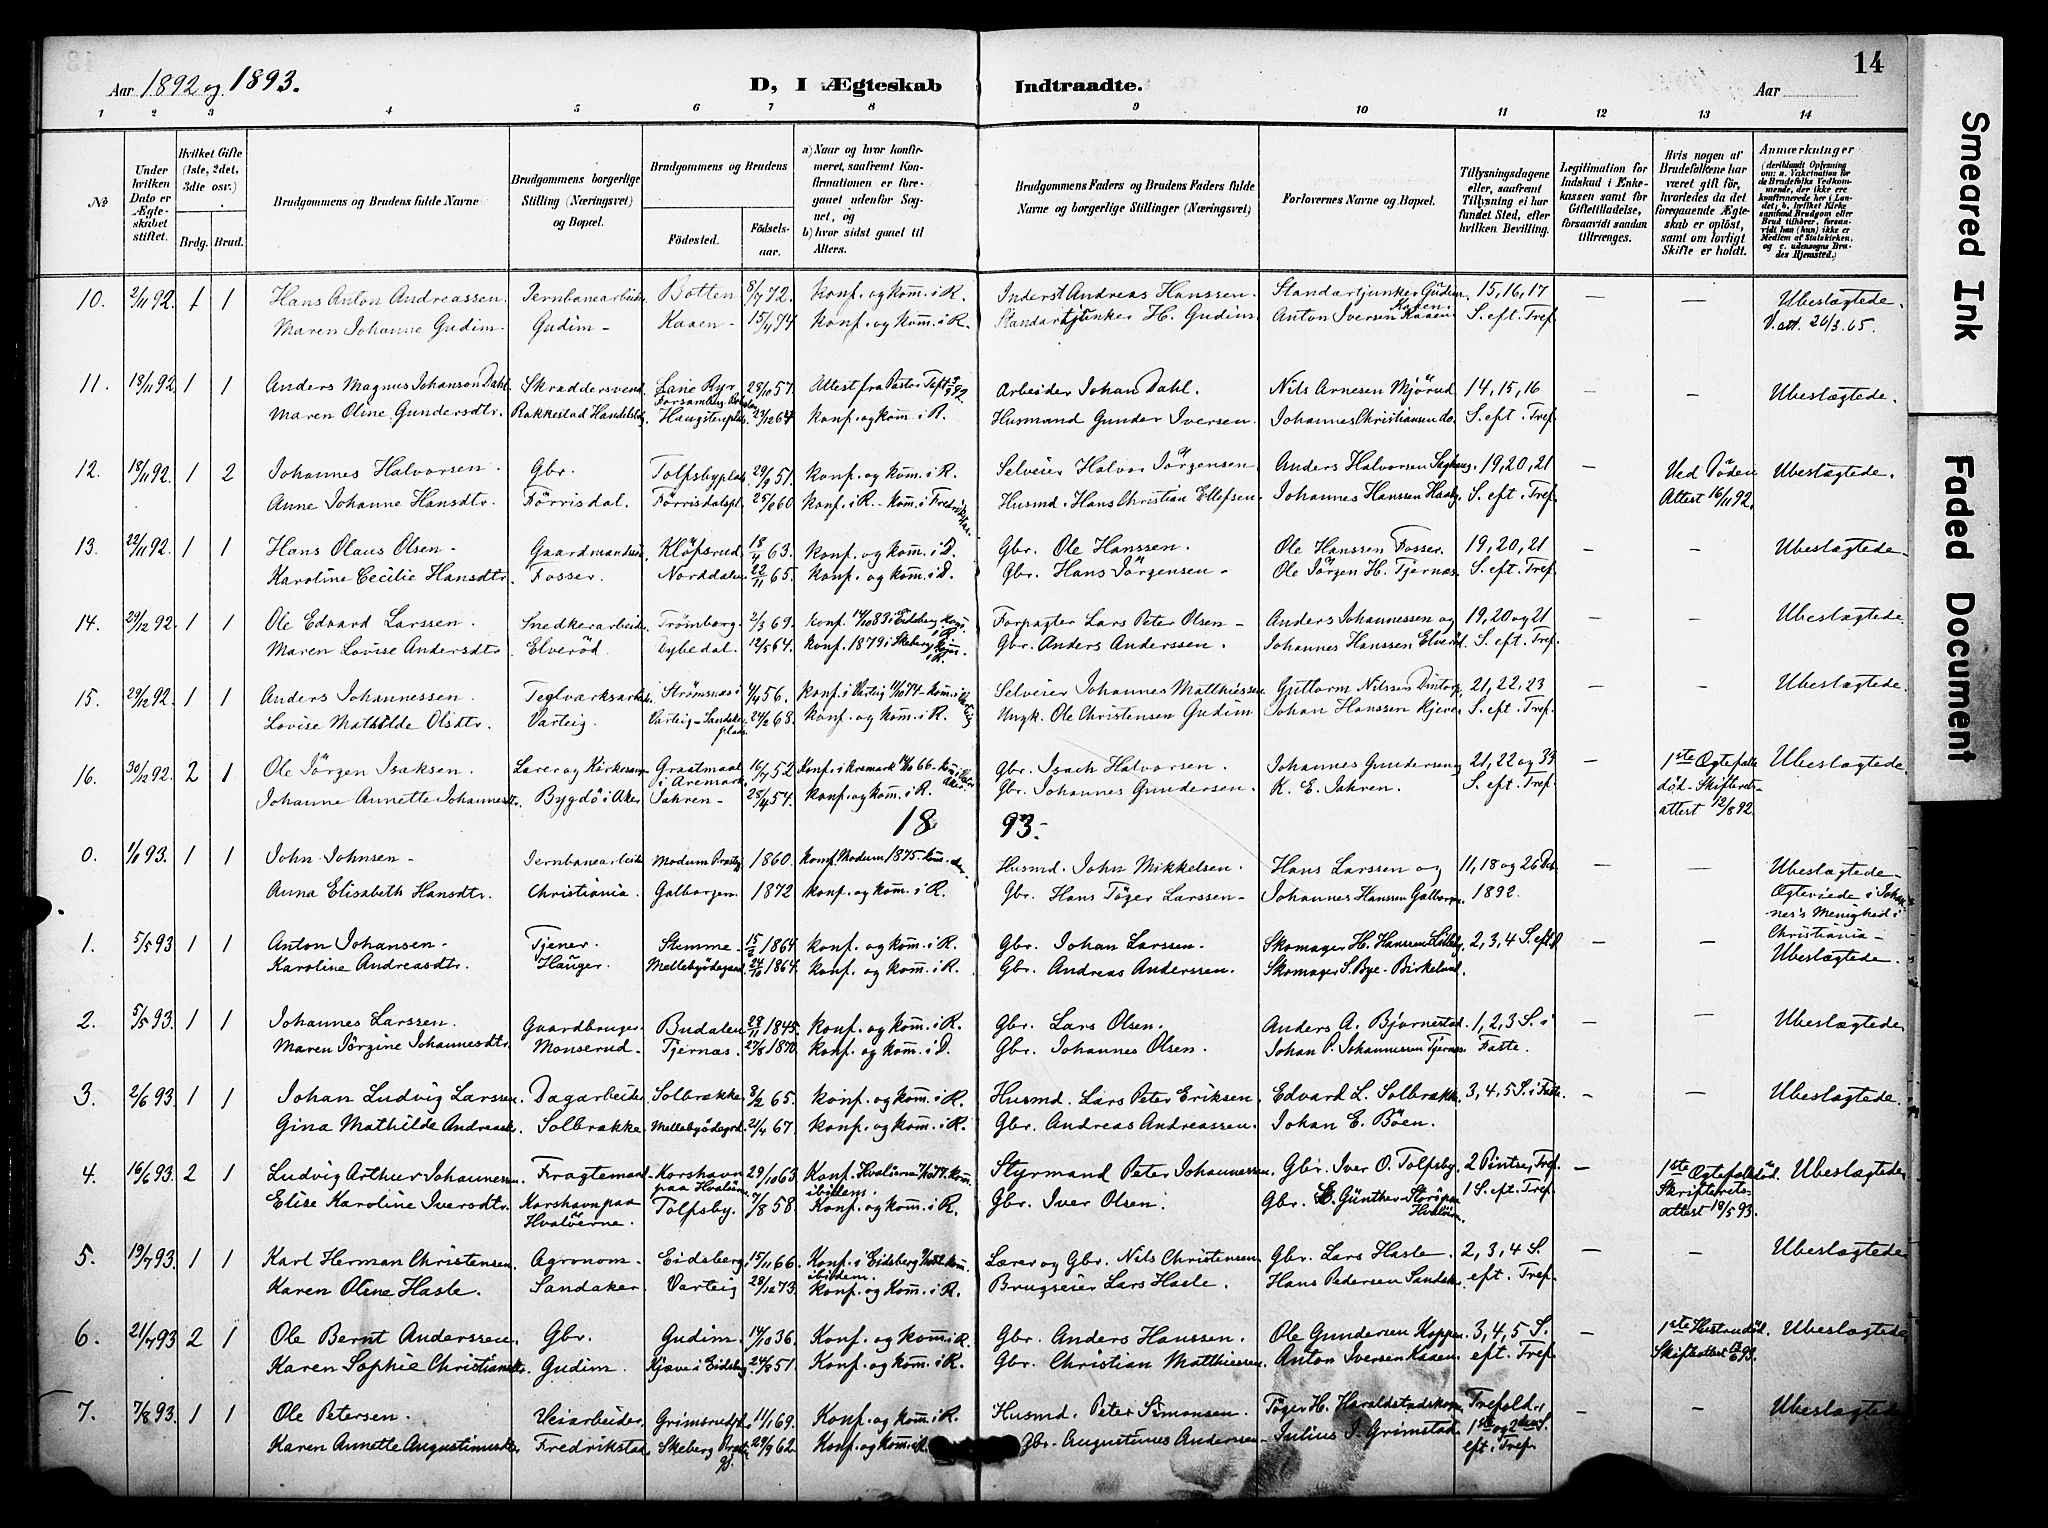 14
Aar 1892 og 1893.
D, I Ægteskab Indtraadte.
Aar
1 2 3 4 5 6 7 8 9 10 11 12 13 14
№
Under hvilken Dato er Ægteskabet stiftet.
Hvilket Gifte (1ste, 2det, 3die osv.)
Brdg. Brud.
Brudgommens og Brudens fulde Navne
Brudgommens borgerlige Stilling (Næringsvei) og Bopæl.
Brudgommens og Brudens
Fødested.
Fødselsaar.
a) Naar og hvor konfirmeret, saafremt Konfirmationen er foregaaet udenfor Sognet, og
b) hvor sidst gaaet til Alters.
Brudgommens Faders og Brudens Faders fulde Navne og borgerlige Stillinger (Næringsvei)
Forlovernes Navne og Bopæl.
Tillysningsdagene eller, saafremt Tillysning ei har fundet Sted, efter hvilken Bevilling.
Legitimation for Indskud i Enkekassen samt for Giftetilladelse, forsaavidt saadan tiltrænges.
Hvis nogen af Brudefolkene har været gift før, hvorledes da det foregaaende Ægteskab er opløst, samt om lovligt Skifte er holdt.
Anmærkninger
(deriblandt Oplysning om: a. Vakcination for de Brudefolks Vedkommende, der ikke ere konfirmerede her i Landet; b. hvilket Kirkesamfund Brudgom eller Brud tilhører, forsaavidt han (hun) ikke er Medlem af Statskirken, og c. udensogns Brudes Hjemsted.)
10. 2/11 92. 1 1 Hans Anton Andreassen. Jernbanearbeider Botten 8/7 72. Konf. og kom. i R. Inderst Andreas Hanssen. Standartjunker Gudim 15, 16, 17 — — Ubeslægtede
Maren Johanne Gudim. Gudim - Kaaen - 15/4 74 konf. og kom. i R. Standartjunker H. Gudim. Anton Iversen Kaaen. S. eft. Tref. V. att. 26/3 65.
11. 18/11 92 1 1 Anders Magnus Johanson Dahl. Skræddersvend 28/10 57. Attest fra Pastor Arbeider Johan Dahl. Nils Arnesen Mjørud 14, 15, 16 — Ubeslægtede.
Maren Oline Gundersdtr. Rakkestad 24/12 64 konf. og kom. i R. Husmand Gunder Iversen. Johannes Christiansen do. S. eft. Tref.
12. 18/11 92. 1 2 Johannes Halvorsen. Gbr. Tolfsbyplads 29/9 51. konf. og kom. i R. Selveier Halvor Jørgensen Anders Halvorsen 19, 20, 21 — Ved Døden Ubeslægtede.
Anne Johanne Hansdtr. Førrisdal. Førrisdalspl. 25/6 60 konf. i R. - kom. i Fredrikshald. Husmd. Hans Christian Ellefsen. Johannes Hanssen S. eft. Tref. Attest 16/11 92.
13. 22/11 92. 1 1 Hans Olaus Olsen - Gaardmandssøn Kløfsrud. 18/4 63. konf. og kom. i D. Gbr. Ole Hanssen. Ole Hanssen Fosser. 19, 20, 21 — Ubeslægtede
Karoline Cecilie Hansdtr. Fosser. Norddalen 22/11 65. konf. og kom. i D. Gbr. Hans Jørgensen - Ole Jørgen H. Tjernæs. S. eft. Tref.
14. 29/12 92. 1 1 Ole Edvard Larssen. Snedkerarbeider. Trømborg. 2/3 69. konf. 14/10 83 i Eidsberg. kom. i R. Forpagter Lars Peter Olsen - Anders Johannessen og 19, 20 og 21 — — Ubeslægtede.
Maren Lovise Andersdtr. Elverød. Dybedal. 12/5 64. konf. 1879 i Skeberg kom. i R. Gbr. Anders Anderssen. Johannes Hanssen Elverød. S. eft. Tref.
15. 29/12 92. 1 1 Anders Johannessen. Teglværksarbeider Strømsnæs i 4/4 56. konf. i Varteig kom. i Varteig Selveier Johannes Matthiessen Guttorm Nilssen 21, 22, 23 — — Ubeslægtede.
Lovise Mathilde Olsdtr. Varteig. Varteig - Sandaker plads. 24/2 68. konf. og kom. i R. Ungk. Ole Christensen Gudim Johan Hanssen S. eft. Tref.
16. 30/12 92. 2 1 Ole Jørgen Isaksen. Lærer og Kirkesanger Graatmaal i Aremark 16/7 52 Konf. i Aremark Gbr. Isach Halvorsen. Johannes Gundersen og 21, 22 og — 1ste Ægtefælle Ubeslægtede.
Johanne Annette Johannesdtr. Bygdø i Aker Jahren - 28/4 54. konf. og kom. i R. Gbr. Johannes Gundersen. K. E. Jahren. S. eft. Tref. død - Skifteretsattest 12/8 92.
18 93.
0. 1/1 93. 1 1 John Johnsen - Jernbanearbeider Modum 1860. konf. Modum 1875. Husmd. John Mikkelsen. Hans Larssen og 11, 18 og 26 Dec. — — Ubeslægtede -
Anna Elisabeth Hansdtr. Christiania. Galborgen. 1872 konf. og kom. i R. Gbr. Hans Tøger Larssen - Johannes Hanssen Galborgen. 1892. Ægteviede i Johannes's Menighed i Christiania -
1. 5/5 93 1 1 Anton Johansen. Tjener. Stemme - 15/2 1864 konf. og kom. i R. Gbr. Johan Larssen. Skomager H. Hanssen 2, 3, 4 S. eft. P. — — Ubeslægtede.
Karoline Andreasdtr. Hauger. Mellebyødegaard 24/10 1864. konf. og kom. i R. Gbr. Andreas Anderssen. Skomager S. Bye - Birkelund.
2. 5/5 93. 1 1 Johannes Larssen. Gaardbruger Budalen 28/11 1845. konf. og kom. i R. Gbr. Lars Olsen. Anders A. Bjørnestad. 1, 2, 3 S. i — — Ubeslægtede.
Maren Jørgine Johannesdtr. Monserud. Tjernæs. 27/8 1870. konf. og kom. i D. Gbr. Johannes Olsen. Johan P. Johannessen Tjernæs. Faste.
3. 2/6 93. 1 1 Johan Ludvig Larssen. Dagarbeider Solbrække 8/2 65. konf. og kom. i R. Husmd. Lars Peter Eriksen Edvard L. Solbrække 3, 4, 5 S. i Faste. — — Ubeslægtede.
Gina Mathilde Andreasdtr. Solbrække. Mellebyødegrd. 2/4 67. konf. og kom. i R. Gbr. Andreas Andreassen. Johan E. Bøen.
4. 16/6 93. 2 1 Ludvig Arthur Johannessen. Fragtemand Korshavn paa Hvaløerne 29/10 63. Konf. Hvaløerne kom. ibidem. Styrmand Peter Johannessen. Gbr. Iver O. Tolfsby. 2 Pintse, Tref. — 1ste Ægtefælle død. Ubeslægtede
Elise Karoline Iversdtr. Korshavn paa Hvaløerne. Tolfsby. 7/8 58. Konf. og kom. i R. Gbr. Iver Olsen. Gbr. Günther Hvaløerne. 1 S. eft. Tref. Skifteretsattest 18/5 93.
5. 19/7 93. 1 1 Karl Herman Christensen. Agronom - Eidsberg 15/11 66. Konf. i Eidsberg kom. ibidem. Lærer og Gbr. Nils Christensen Gbr. Lars Hasle. 2, 3, 4 S. — — Ubeslægtede
Karen Oline Hasle. Sandaker. Varteig 28/12 73. konf. og kom. i R. Brugseier Lars Hasle. Hans Pedersen Sandaker eft. Tref.
6. 21/7 93 2 1 Ole Bernt Anderssen. Gbr. Gudim. 14/10 36. Konf. og kom. i R. Gbr. Anders Hanssen. Ole Gundersen Koppen. 3, 4, 5 S. — 1ste Hustru død. Ubeslægtede
Karen Sophie Christiansdtr. Gudim. Kjøve i Eidsberg 24/8 51. Konf. og kom. i R. Gbr. Christian Matthiessen. Anton Iversen Kaaen. eft. Tref. Skifteattest 93.
7. 7/8 93. 1 1 Ole Petersen. Veiarbeider Grimsrud 11/1 69. Konf. og kom. i R. Husmd. Peter Simonsen. Tøger H. Haraldstadskom. Trefold., — — Ubeslægtede
Karen Annette Augustinusdtr. Fredrikstad. Skeberg Prstgj. 29/9 62. Konf. og kom. i R. Gbr. Augustinus Andersen - Julius J. Grimstad. 1ste og 2den S. eft. Tref.
Smeared Ink
Faded Document